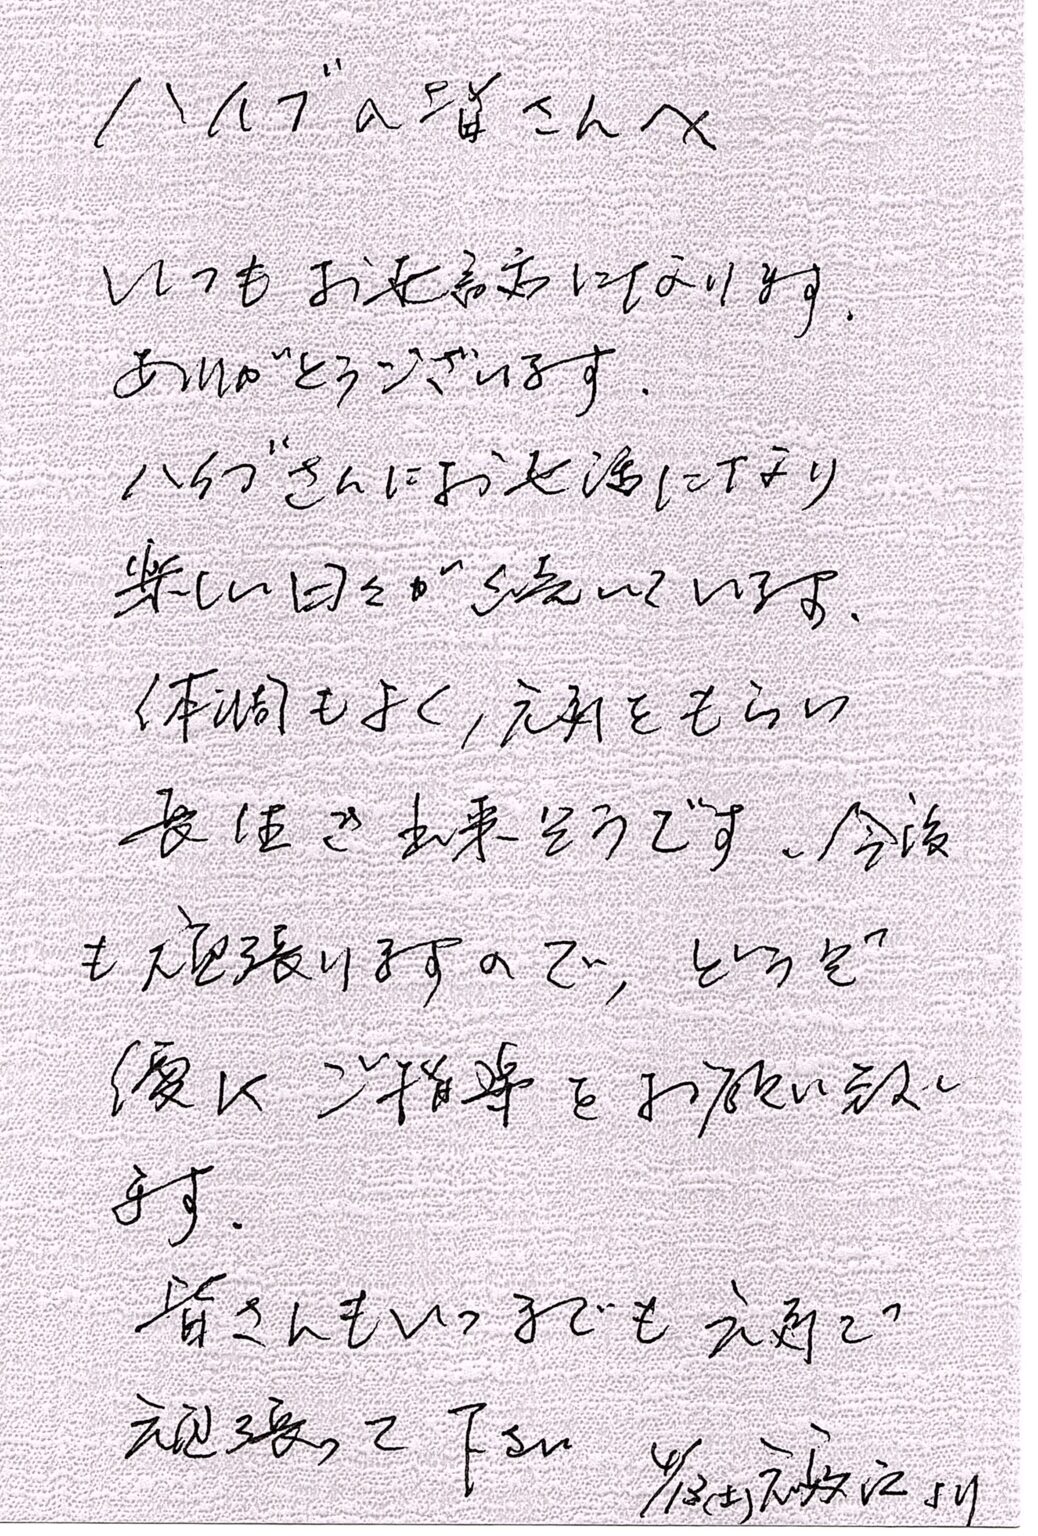 ハイブの皆さんへ
いつもお世話になります.
ありがとうございます.
ハイブさんにお世話になり
楽しい日々が続いています.
体調もよく,元気をもらい
長生き出来そうです.今後
も頑張りますので,どうぞ
優しくご指導をお願い致し
ます.
皆さんもいつまでも元気で
頑張って下さい
4/13(土) より